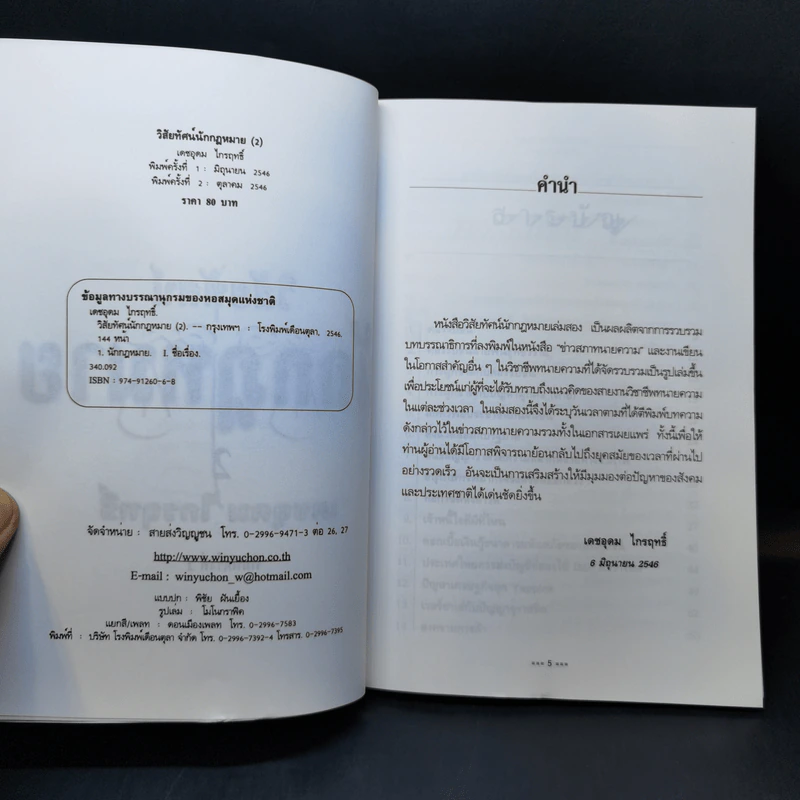 วิสัยทัศน์นักกฎหมาย (2)
เดชอุดม ไกรฤทธิ์
พิมพ์ครั้งที่ 1 : มิถุนายน 2546
พิมพ์ครั้งที่ 2 : ตุลาคม 2546
ราคา 80 บาท
ข้อมูลทางบรรณานุกรมของหอสมุดแห่งชาติ
เดชอุดม ไกรฤทธิ์.
วิสัยทัศน์นักกฎหมาย (2). -- กรุงเทพฯ : โรงพิมพ์เดือนตุลา, 2546.
144 หน้า
1. นักกฎหมาย. I. ชื่อเรื่อง.
340.092
ISBN : 974-91260-6-8
จัดจำหน่าย : สายส่งวิญญูชน โทร. 0-2996-9471-3 ต่อ 26, 27
http://www.winyuchon.co.th
E-mail : winyuchon_w@hotmail.com
แบบปก : พิชัย ผันเยื้อง
รูปเล่ม : โมโนกราฟิค
แยกสี/เพลท : ดอนเมืองเพลท โทร. 0-2996-7583
พิมพ์ที่ : บริษัท โรงพิมพ์เดือนตุลา จำกัด โทร. 0-2996-7392-4 โทรสาร. 0-2996-7395
คำนำ
หนังสือวิสัยทัศน์นักกฎหมายเล่มสอง เป็นผลผลิตจากการรวบรวม
บทบรรณาธิการที่ลงพิมพ์ในหนังสือ "ข่าวสภาทนายความ" และงานเขียน
ในโอกาสสำคัญอื่น ๆ ในวิชาชีพทนายความที่ได้จัดรวบรวมเป็นรูปเล่มขึ้น
เพื่อประโยชน์แก่ผู้ที่จะได้รับทราบถึงแนวคิดของสายงานวิชาชีพทนายความ
ในแต่ละช่วงเวลา ในเล่มสองนี้จึงได้ระบุวันเวลาตามที่ได้ตีพิมพ์บทความ
ดังกล่าวไว้ในข่าวสภาทนายความรวมทั้งในเอกสารเผยแพร่ ทั้งนี้เพื่อให้
ท่านผู้อ่านได้มีโอกาสพิจารณาย้อนกลับไปถึงยุคสมัยของเวลาที่ผ่านไป
อย่างรวดเร็ว อันจะเป็นการเสริมสร้างให้มีมุมมองต่อปัญหาของสังคม
และประเทศชาติได้เด่นชัดยิ่งขึ้น
เดชอุดม ไกรฤทธิ์
6 มิถุนายน 2546
««« 5 »»»